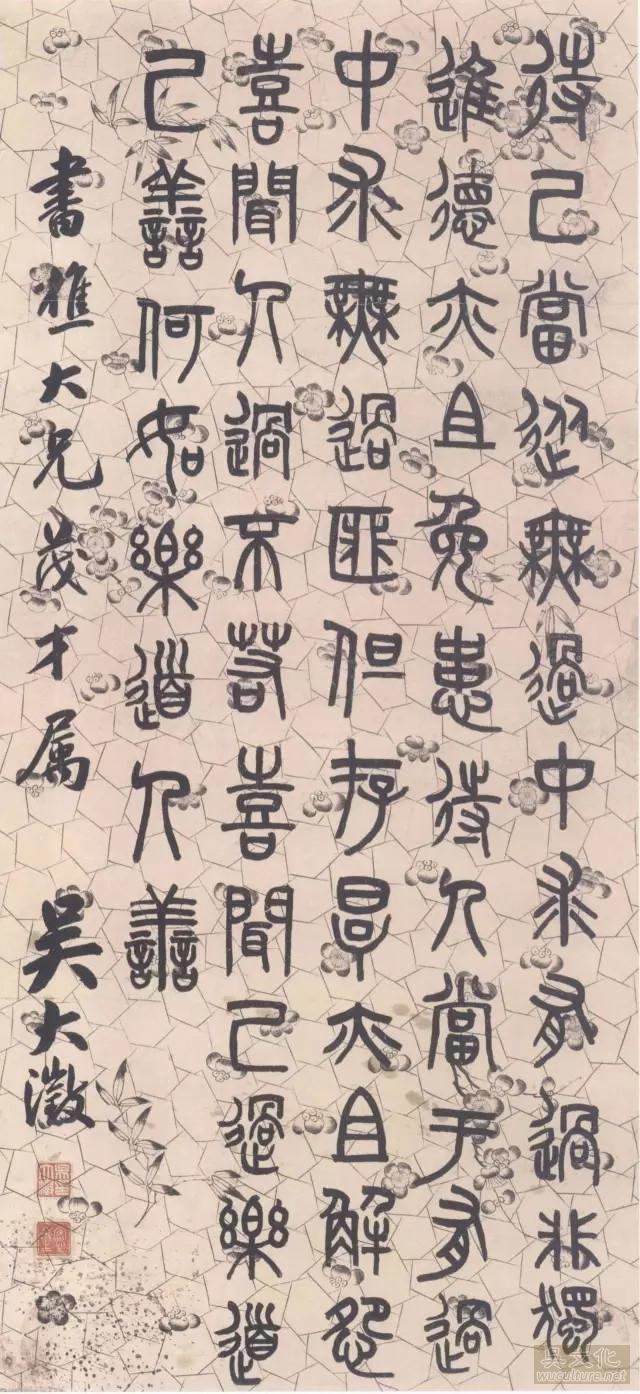 待己當從無過中求有過非獨
進德亦且免患待人當于有過
中求無過匪但存厚亦且解怨
喜聞人過不若喜聞己過樂道
己善何如樂道人善
書樵大兄茂才属 吳大澂
吴文化
wuculture.net